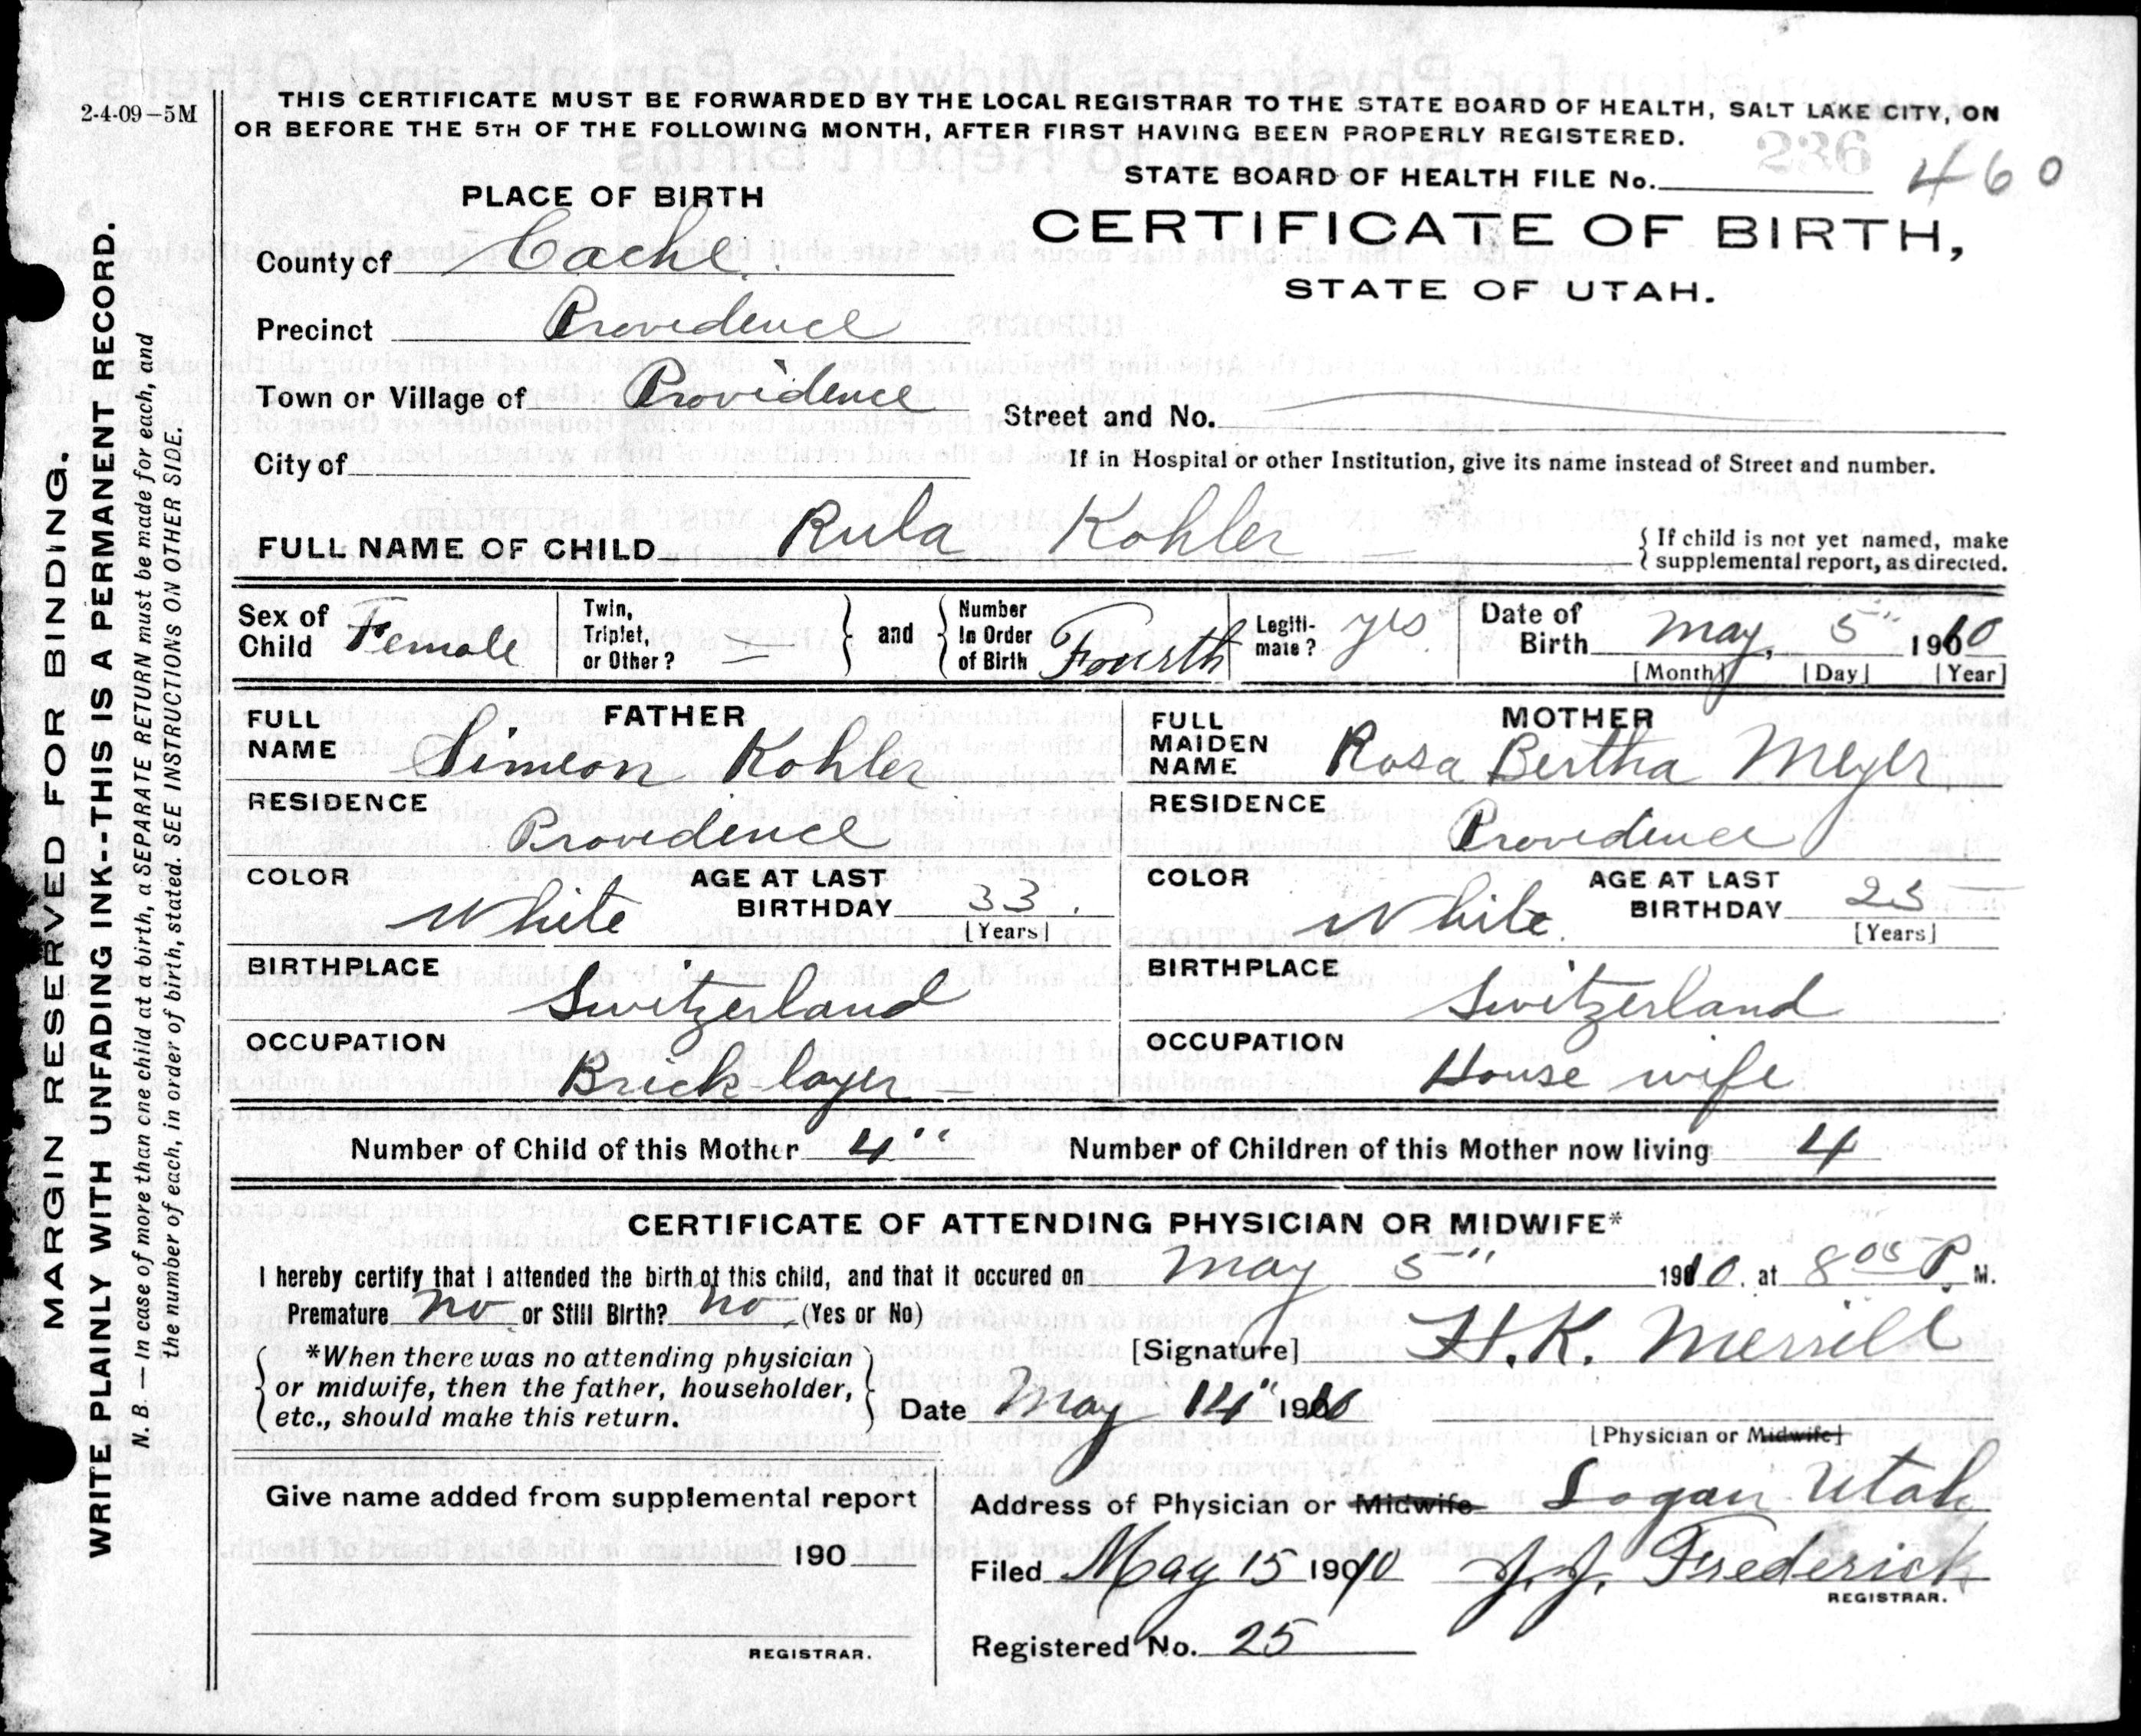 2-4-09-5M
THIS CERTIFICATE MUST BE FORWARDED BY THE LOCAL REGISTRAR TO THE STATE BOARD OF HEALTH, SALT LAKE CITY, ON
OR BEFORE THE 5TH OF THE FOLLOWING MONTH, AFTER FIRST HAVING BEEN PROPERLY REGISTERED.
236
STATE BOARD OF HEALTH FILE No. 460
PLACE OF BIRTH
CERTIFICATE OF BIRTH,
STATE OF UTAH.
County of Cache
Precinct Providence
Town or Village of Providence
Street and No.
City of
If in Hospital or other Institution, give its name instead of Street and number.
FULL NAME OF CHILD Rula Kohler
{ If child is not yet named, make
supplemental report, as directed.
Sex of Child Female
Twin, Triplet, or Other? —
and
Number In Order of Birth Fourth
Legitimate? yes
Date of Birth May, 5" 1910
[Month] [Day] [Year]
FATHER
FULL NAME Simeon Kohler
RESIDENCE
Providence
COLOR White AGE AT LAST BIRTHDAY 33.
[Years]
BIRTHPLACE
Switzerland
OCCUPATION
Brick layer
MOTHER
FULL MAIDEN NAME Rosa Bertha Meyer
RESIDENCE
Providence
COLOR White AGE AT LAST BIRTHDAY
[Years]
BIRTHPLACE
Switzerland
OCCUPATION
House wife
Number of Child of this Mother 4" Number of Children of this Mother now living 4
CERTIFICATE OF ATTENDING PHYSICIAN OR MIDWIFE*
I hereby certify that I attended the birth of this child, and that it occured on May 5" 1910. at 8 05 P. M.
Premature no or Still Birth? no (Yes or No)
*When there was no attending physician
or midwife, then the father, householder,
etc., should make this return.
[Signature] H. K. Merrill
Date May 14" 1910
[Physician or Midwife]
Address of Physician or Midwife Logan Utah
Give name added from supplemental report
190
REGISTRAR.
Filed May 15 1910 J. J. Frederick
REGISTRAR.
Registered No. 25
MARGIN RESERVED FOR BINDING.
WRITE PLAINLY WITH UNFADING INK--THIS IS A PERMANENT RECORD.
N. B. — In case of more than one child at a birth, a SEPARATE RETURN must be made for each, and
the number of each, in order of birth, stated. SEE INSTRUCTIONS ON OTHER SIDE.